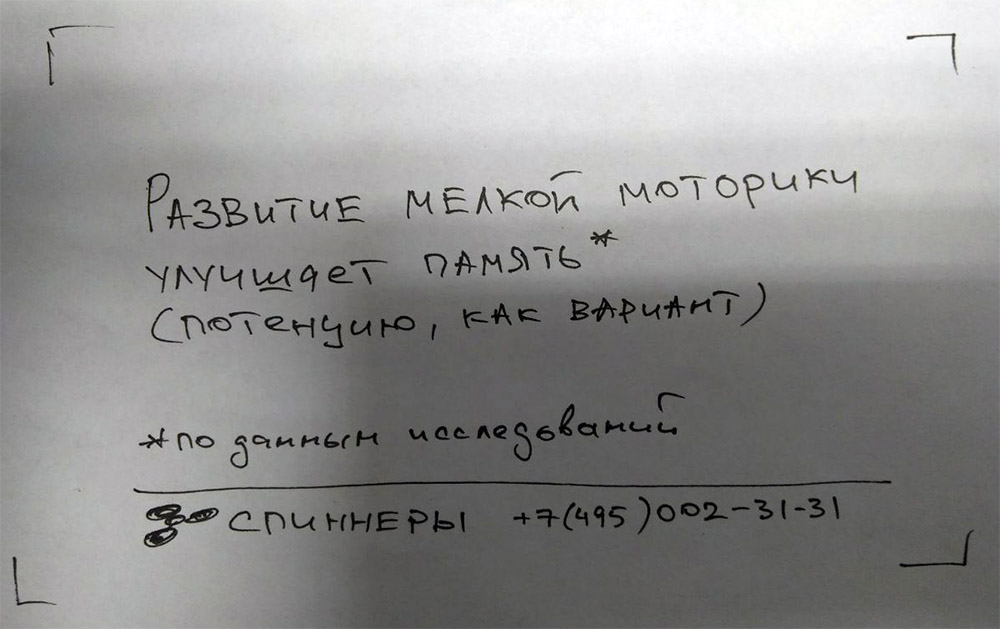 Развитие мелкой моторики
улучшает память*
(потенцию, как вариант)
*по данным исследований
СПИННЕРЫ +7(495)002-31-31